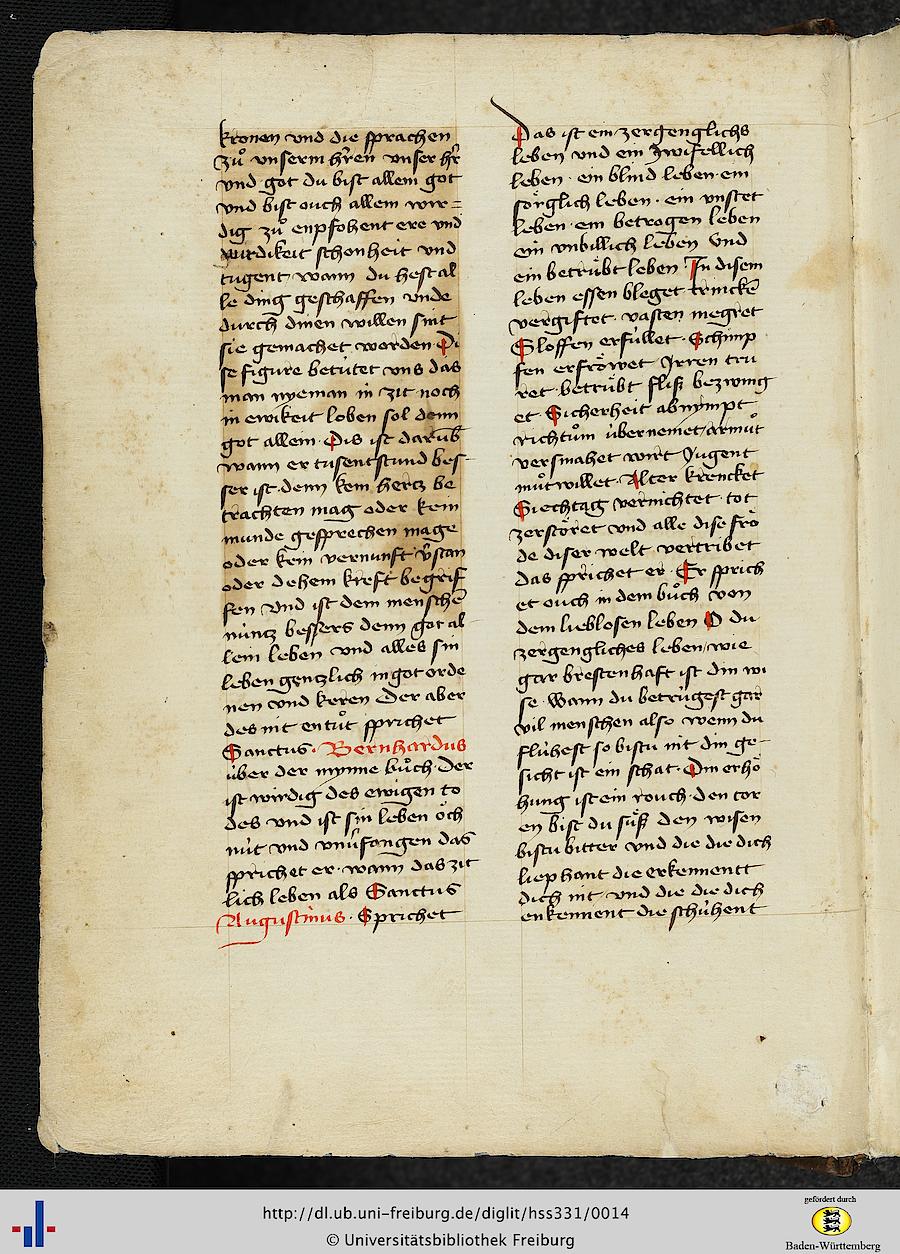 kronen vnd die sprachen
zuͦ vnserm hr̄en vnser hr̄
vnd got du bist allem got
vnd bist ouch allem wir=
dig zuͦ enpfohent ere vnd
wirdikeit schonheit vnd
tugent · wann du hest al
le ding geschaffen vnde
durch dinen willen sint
sie gemachet worden Di
se figure betútet vns das
man nyeman in zit noch
in ewikeit loben sol denn
got allein · Dis ist darūb
wann er tusentstund bes-
ser ist denn kein hertz be
trachten mag oder kein
munde gesprechen mage
oder kein vernunft v̄stan
oder dehein kreft begrif
fen vnd ist dem menschē
núntz bessers denn got al
lein leben vnd alles sin
leben gentzlich in got orde
nen vnd keren Der aber
des nit entuͦt sprichet
Sanctus · Bernhardus
über der mynne buͦch · Der
ist wirdig des ewigen to
des vnd ist sin leben öch
nút vnd vnūfangen das
sprichet er · wann das zit
lich leben als Sanctus
Augustinus · Sprichet
Das ist ein zergenglichs
leben vnd ein zwifellich
leben · ein blind leben · ein
sörglich leben · ein vnstet
leben · ein betrogen leben
ein vnbillich leben vnd
ein betrübt leben In disem
leben essen bleget trinckē
vergiftet · vasten megret
Sloffen erfúllet · Schimp
fen erfröwet Irren tru
ret · betrübt fliſz bezwing
et · Sicherheit abnympt
richtuͦm übernemet / armuͦt
versmahet wirt Jugent
muͦtwillet · Alter krencket
Siechtag vernichtet · tot
zerstöret vnd alle dise frö
de diser welt vertribet
das sprichet er · Er sprich
et ouch in dem buͦch von
dem lieblosen leben O du
zergengliches leben / wie
gar brestenhaft ist din wi
se · Wann du betrúgest gar
vil menschen also wenn du
flúhest so bistu nit din ge-
sicht ist ein schat · Din erhö
hung ist ein rouch · den tor
en bist du süſz den wisen
bistu bitter vnd die die dich
liep hant die erkennentt
dich nit · vnd die die dich
enkennent die schúhent
http://dl.ub.uni-freiburg.de/diglit/hss331/0014
© Universitätsbibliothek Freiburg
gefördert durch
Baden-Württemberg